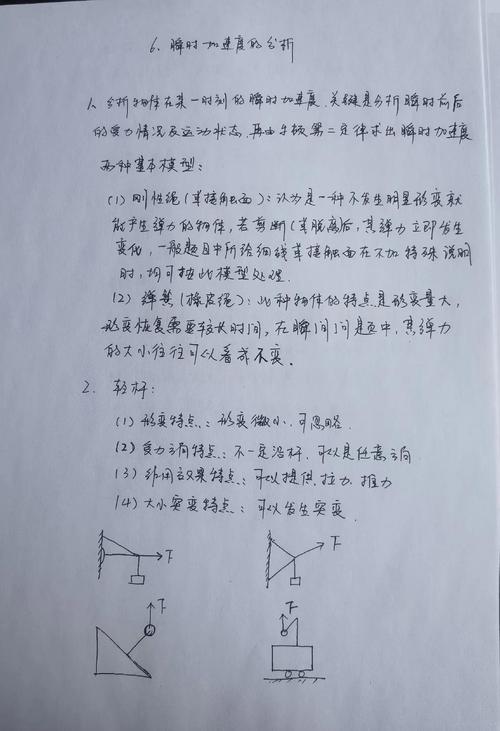 6. 瞬时加速度的分析
1. 分析物体在某一时刻的瞬时加速度, 关键是分析瞬时前后
的受力情况及运动状态, 再由牛顿第二定律求出瞬时加速度
两种基本模型:
(1) 刚性绳(或接触面): 认为是一种不发生明显形变就
能产生弹力的物体, 若剪断(或脱离)后, 其弹力立即发生
变化, 一般题目中所给细线或接触面在不加特殊说明
时, 均可按此模型处理.
(2) 弹簧(橡皮绳): 此种物体的特点是形变量大,
形变恢复需要较长时间, 在瞬间问题中, 其弹力
的大小往往可以看成不变.
2. 轻杆:
(1) 形变特点: 形变微小, 可忽略.
(2) 受力方向特点: 不一定沿杆, 可以是任意方向
(3) 作用效果特点: 可以提供拉力、推力
(4) 大小突变特点: 可以发生突变.
F
F
F
F